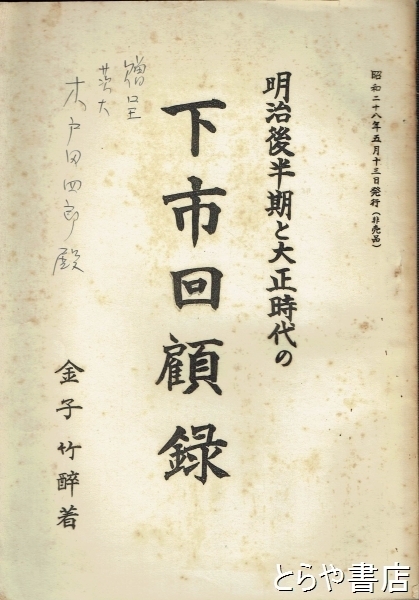 昭和二十八年五月十三日発行（非売品）
明治後半期と大正時代の
下市回顧録
金子竹酔著
贈呈
茨大
木戸田四郎殿
とらや書店